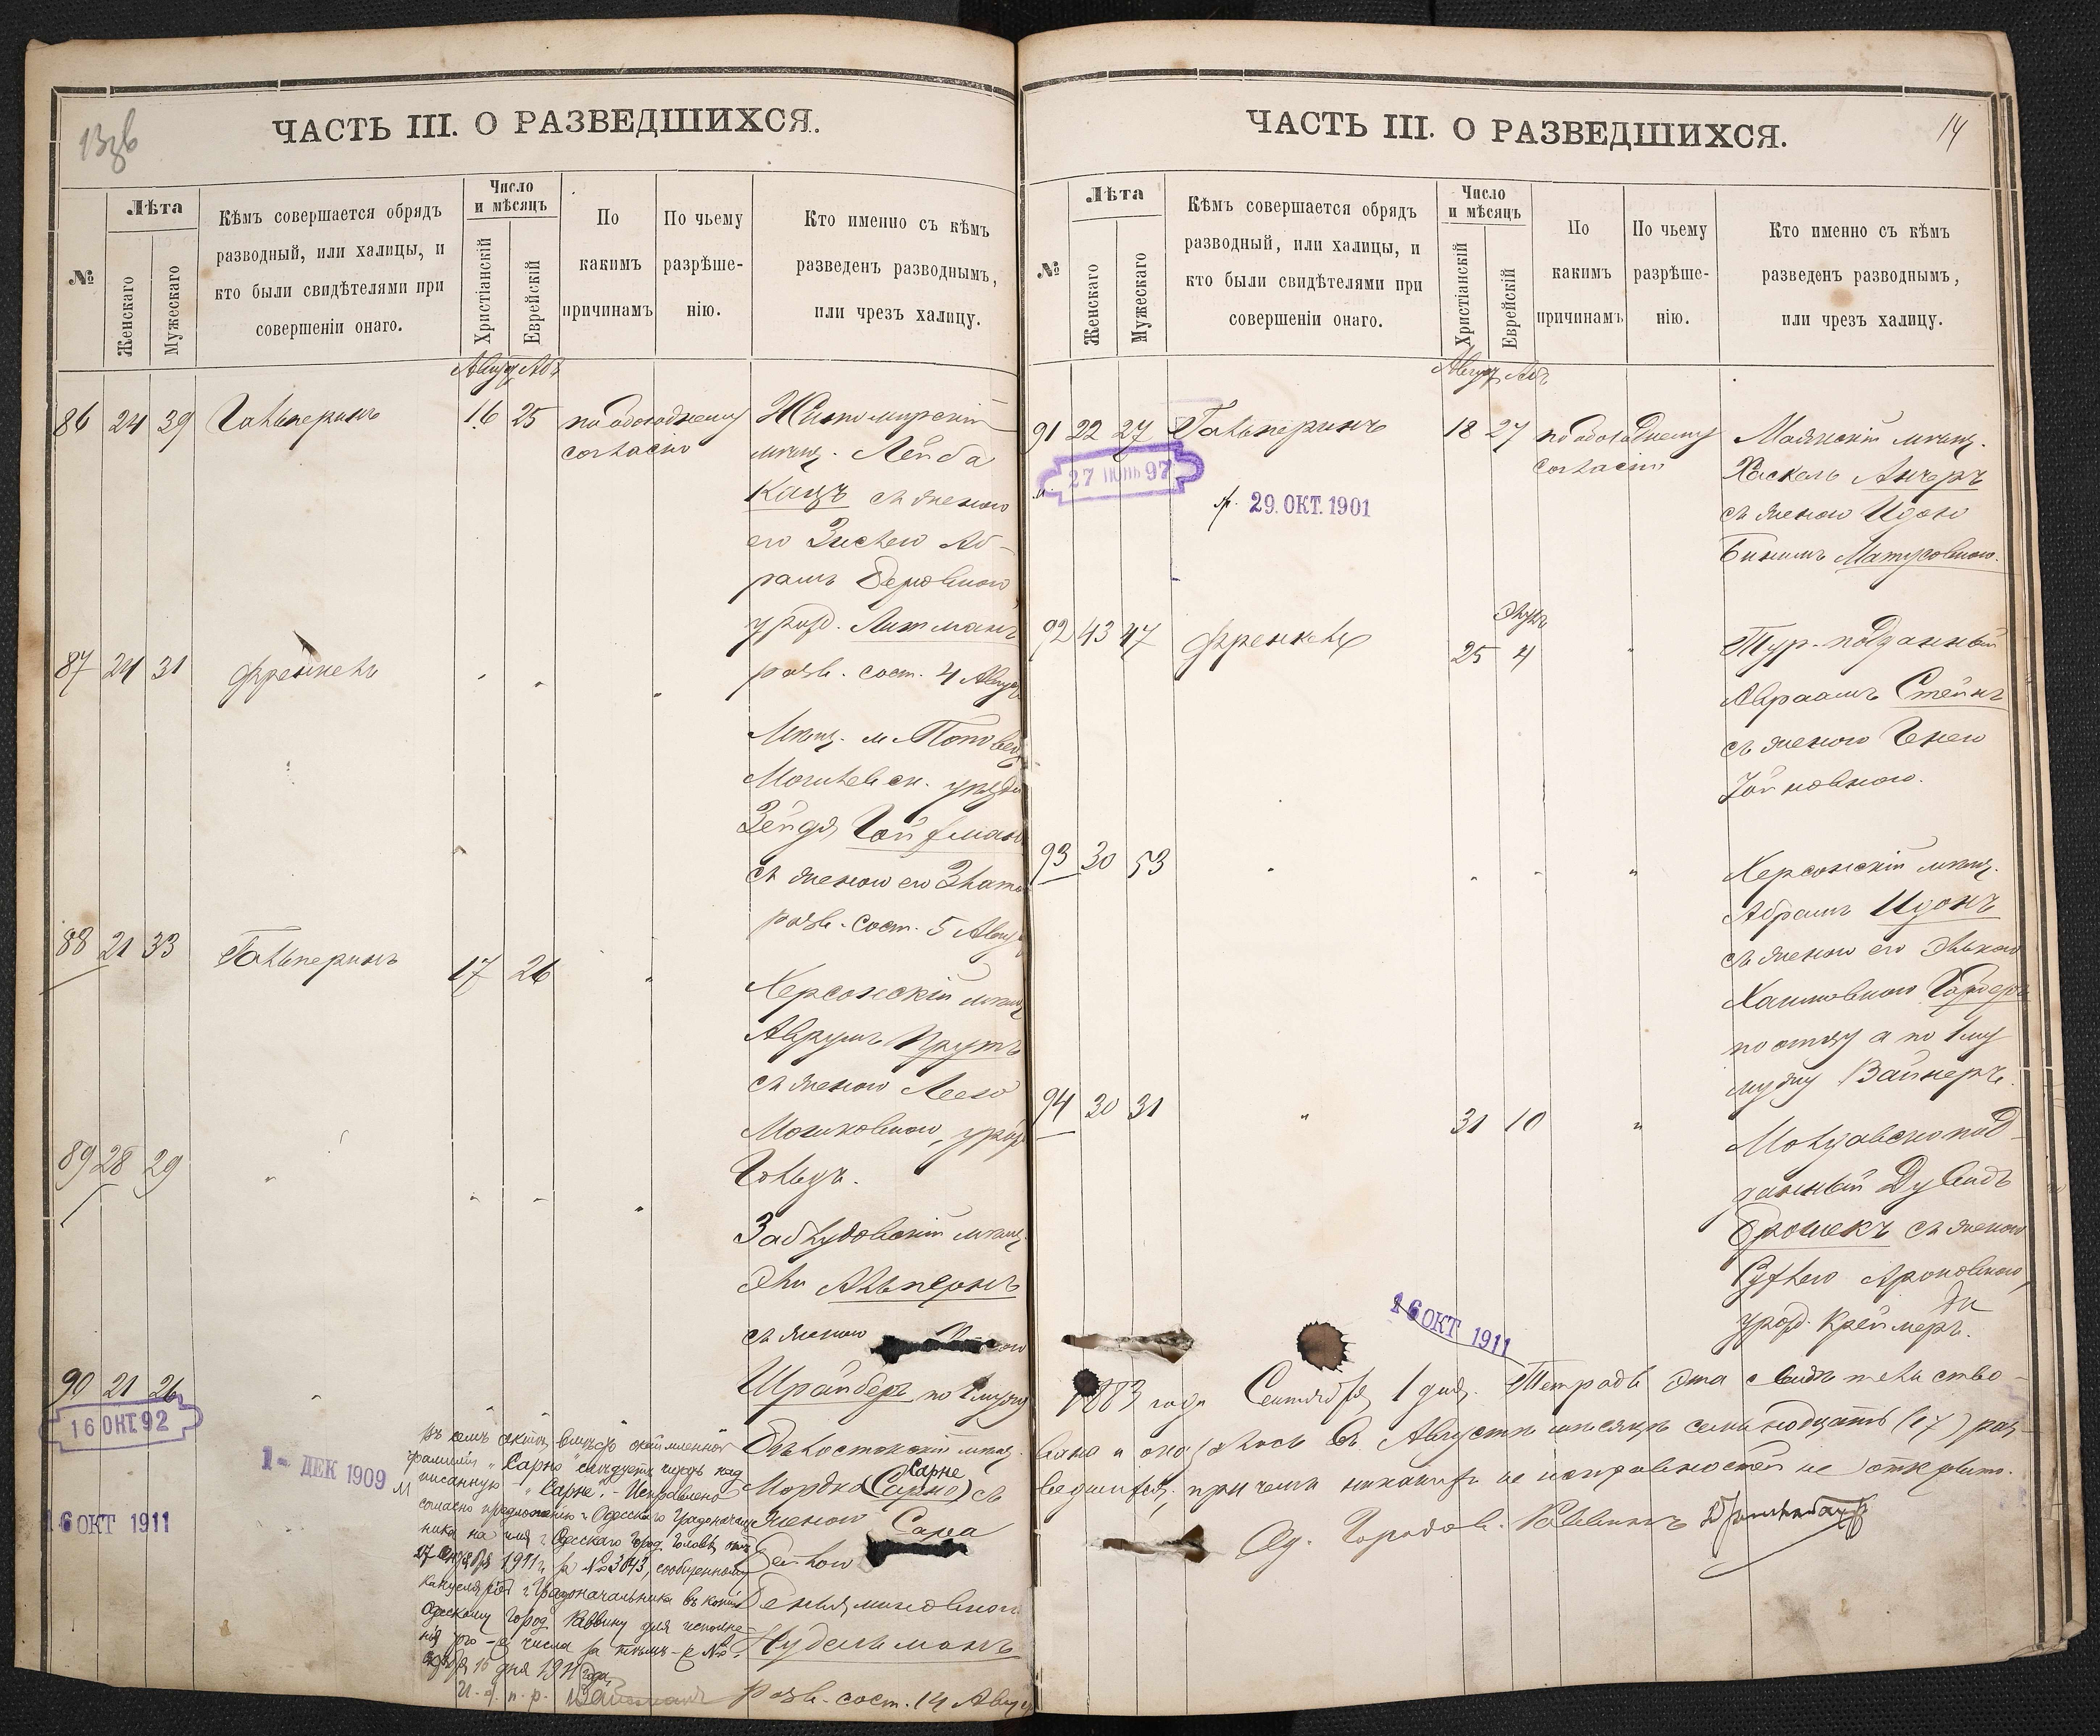 13об
ЧАСТЬ III. О РАЗВЕДШИХСЯ.
№
Лѣта
Женскаго
Мужескаго
Кѣмъ совершается обрядъ
разводный, или халицы, и
кто были свидѣтелями при
совершеніи онаго.
Число
и мѣсяцъ
Христіанскій
Еврейскій
По
какимъ
причинамъ
По чьему
разрѣше-
нію.
Кто именно съ кѣмъ
разведенъ разводнымъ,
или чрезъ халицу.
Август Абъ
86 24 39 Гальперинъ 16 25 по обоюдному
согласію
Житомирскій
мѣщ. Лейба
Кацъ съ женою
его Зислею Аб-
рамъ Беровною
урож. Литманъ
разв. сост. 4 Август
87 24 31 Френкель " " "
Мѣщ. м. Поповец
Могилевск. уѣзда
Зейдя Гойфманъ
съ женою его Злато
разв. сост. 5 Август
88 21 33 Гальперинъ 17 26 "
Херсонскій мѣщ
Аврумъ Прутъ
съ женою Леею
Мошковною, урож
Гольцъ.
89 28 29 " " " "
Заблудовскій мѣщ.
Эли Альперинъ
съ женою
Шрайберъ по 1 мужу
90 21 26 " " " "
Бѣлостокскій мѣщ.
Сарне
Мордко (Сарно) съ
женою Сара
Бейлою
Беньяминовною
Нудельманъ
разв. сост. 14 Август
16 ОКТ. 92
1 - ДЕК 1909
16 ОКТ 1911
Въ семъ актѣ, вмѣсто окаймленной
фамиліи „Сарно" слѣдуетъ читать над
писанную „Сарне". - Исправлено
согласно предложенію г. Одесскаго Градоначаль
ника на имя г. Одесскаго Город. Головы отъ
17 1911 г. за № 3043, сообщенному
Канцеляріей г. Градоначальника въ копіи
Одесскому Город. Раввину для исполне-
нія того-же числа за тѣмъ-же №.
15 дня 1911 года
И. д. п. р.
14
ЧАСТЬ III. О РАЗВЕДШИХСЯ.
№
Лѣта
Женскаго
Мужескаго
Кѣмъ совершается обрядъ
разводный, или халицы, и
кто были свидѣтелями при
совершеніи онаго.
Число
и мѣсяцъ
Христіанскій
Еврейскій
По
какимъ
причинамъ
По чьему
разрѣше-
нію.
Кто именно съ кѣмъ
разведенъ разводнымъ,
или чрезъ халицу.
Август Абъ
91 22 27 Гальперинъ 18 27 по обоюдному
согласію
Маякскій мѣщ.
Хаскель Анчеръ
съ женою Идою
Бинимъ Матусовною.
27 ІЮНЬ 97
29. ОКТ. 1901
Элулъ
92 43 47 Френкель 25 4 "
Тур. подданный
Авраамъ Стейнъ
съ женою Генею
Хойновною.
93 30 53 " " " "
Херсонскій мѣщ.
Абрамъ Идонъ
съ женою его Элькою
Хаимовною Гарберъ
по отцу а по 1 му
мужу Вайнеръ.
94 30 31 " 31 10 "
Молдавско под-
данный Дувидъ
Брошекъ съ женою
Руфлею Ароновною,
урож. Креймеръ.
16 ОКТ 1911
1883 года Сентября 1 дня. Тетрадь эта свидѣтельство-
вана и оказалось въ Августѣ мѣсяцѣ семнадцать (17) раз-
ведшихся; при чемъ никакихъ не исправностей не открыто.
Од. Городов. Раввинъ